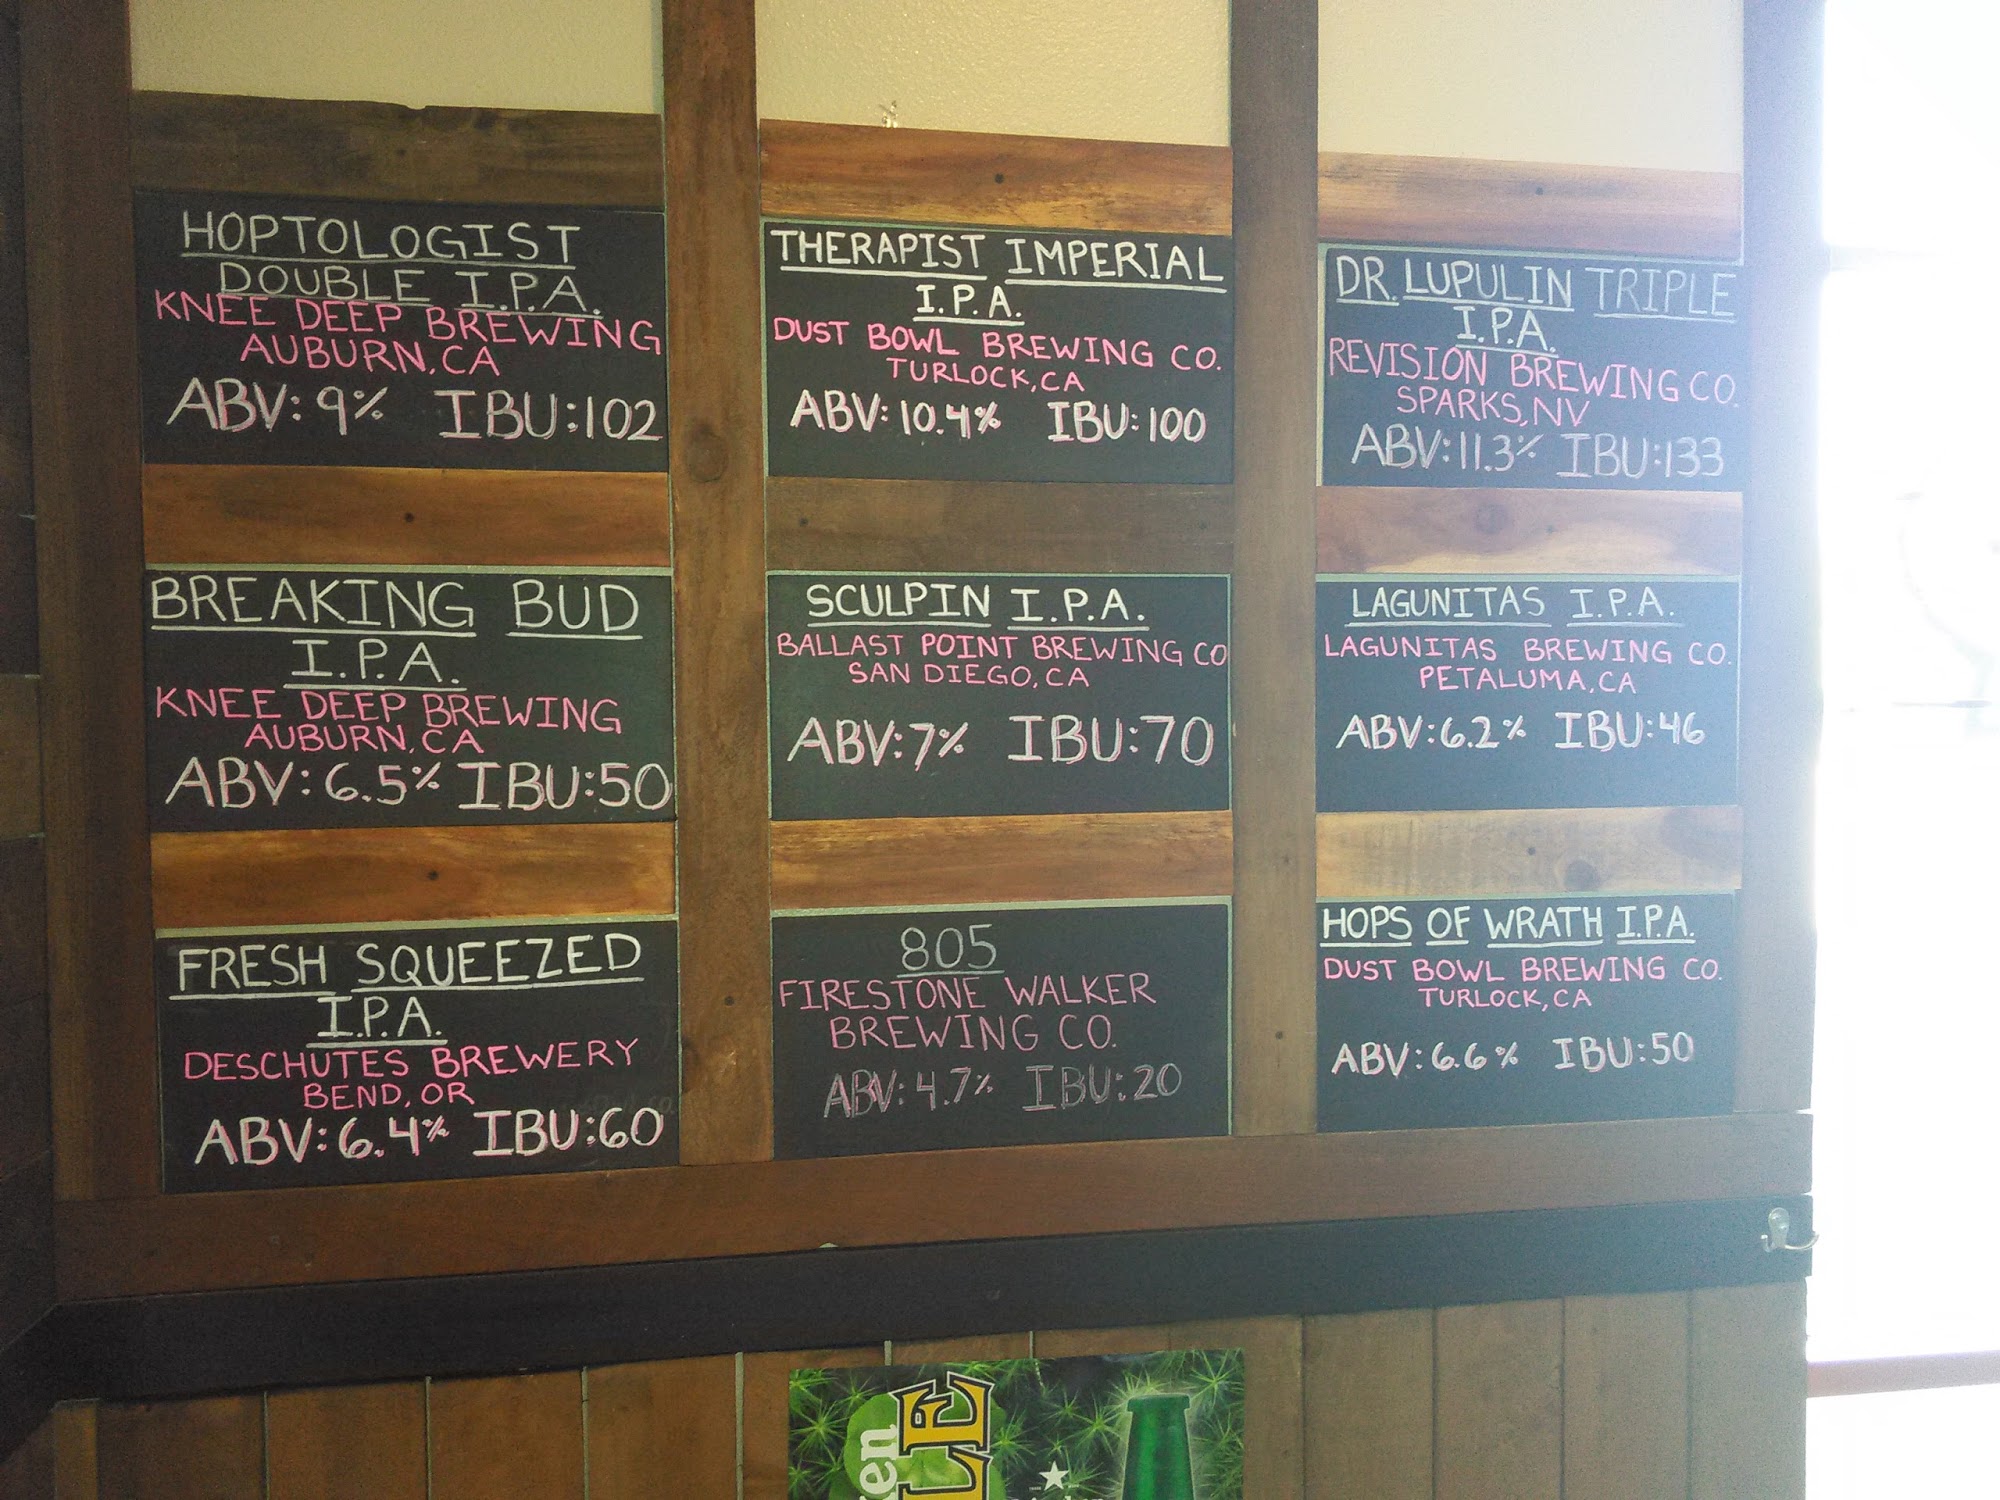 HOPTOLOGIST
DOUBLE I.P.A.
KNEE DEEP BREWING
AUBURN, CA
ABV: 9% IBU: 102
THERAPIST IMPERIAL
I.P.A.
DUST BOWL BREWING CO.
TURLOCK, CA
ABV: 10.4% IBU: 100
DR. LUPULIN TRIPLE
I.P.A.
REVISION BREWING CO.
SPARKS, NV
ABV: 11.3% IBU: 133
BREAKING BUD
I.P.A.
KNEE DEEP BREWING
AUBURN, CA
ABV: 6.5% IBU: 50
SCULPIN I.P.A.
BALLAST POINT BREWING CO
SAN DIEGO, CA
ABV: 7% IBU: 70
LAGUNITAS I.P.A.
LAGUNITAS BREWING CO.
PETALUMA, CA
ABV: 6.2% IBU: 46
FRESH SQUEEZED
I.P.A.
DESCHUTES BREWERY
BEND, OR
ABV: 6.4% IBU: 60
805
FIRESTONE WALKER
BREWING CO.
ABV: 4.7% IBU: 20
HOPS OF WRATH I.P.A.
DUST BOWL BREWING CO.
TURLOCK, CA
ABV: 6.6% IBU: 50